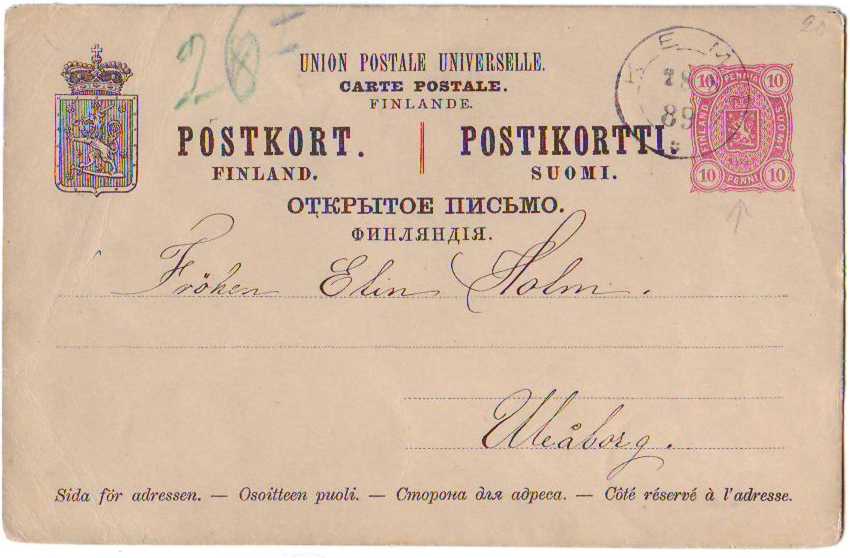 26
20
UNION POSTALE UNIVERSELLE.
CARTE POSTALE.
FINLANDE.
POSTKORT. POSTIKORTTI.
FINLAND. SUOMI.
ОТКРЫТОЕ ПИСЬМО.
ФИНЛЯНДІЯ.
KEMI
89
10 PENNIÄ 10
FINLAND SUOMI
10 PENNI 10
Fröken Elin Holm.
Uleåborg.
Sida för adressen. — Osoitteen puoli. — Сторона для адреса. — Côté réservé à l'adresse.